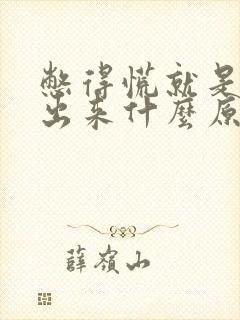 憋得慌就是
出来什麼原
薛嶺山